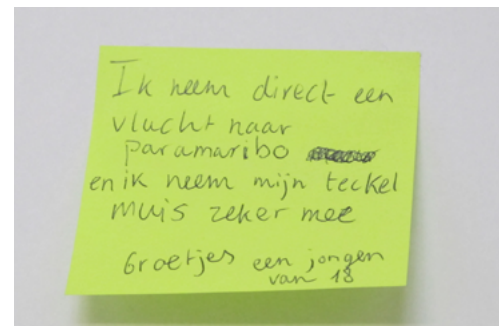 Ik neem direct een
vlucht naar
paramaribo
en ik neem mijn teckel
muis zeker mee
Groetjes een jongen
van 18